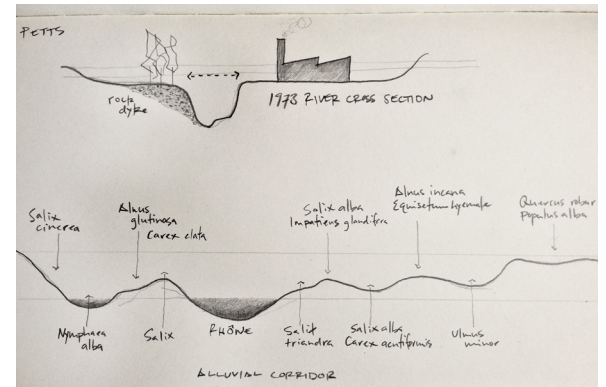 PETTS
rock
dyke
1973 RIVER CROSS SECTION
Salix
cinerea
Alnus
glutinosa
Carex elata
Salix alba
Impatiens glandifera
Alnus incana
Equisetum hyemale
Quercus robar
Populus alba
Nymphaea
alba
Salix
RHÔNE
Salix
triandra
Salix alba
Carex acutiformis
Ulmus
minor
ALLUVIAL CORRIDOR